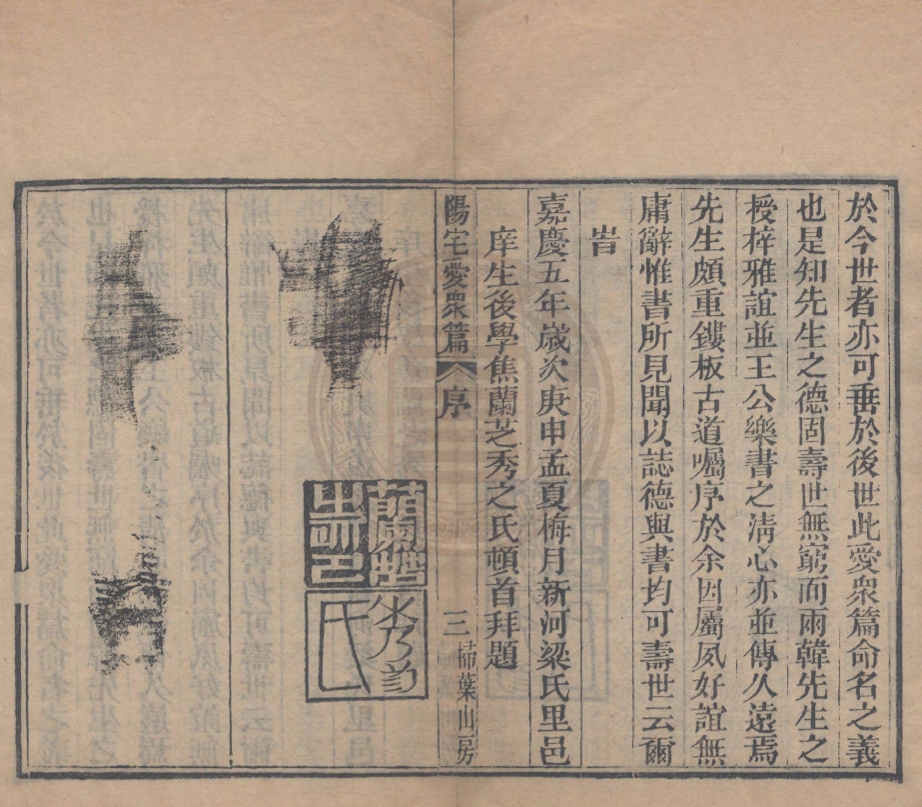 於今世者亦可垂於後世此愛衆篇命名之義
也是知先生之德固壽世無窮而雨韓先生之
授梓雅誼並王公樂書之淸心亦並傳久遠焉
先生頗重鏤板古道囑序於余因屬夙好誼無
庸辭惟書所見聞以誌德與書均可壽世云爾
旹
嘉慶五年歲次庚申孟夏梅月新河梁氏里邑
庠生後學焦蘭芝秀之氏頓首拜題
陽宅愛衆篇 序 三 掃葉山房
蘭芝
之印
秀之
氏